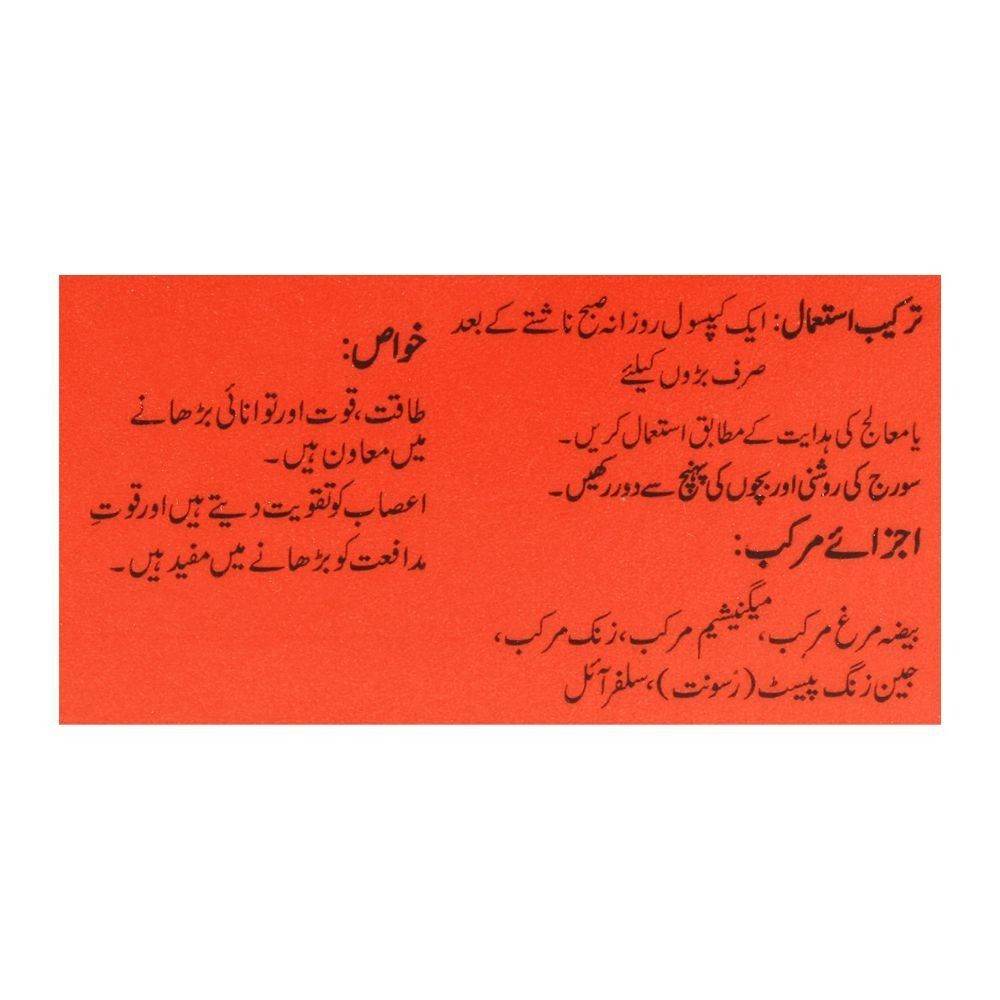 ترکیب استعمال: ایک کیپسول روزانہ صبح ناشتے کے بعد
صرف بڑوں کیلئے
یا معالج کی ہدایت کے مطابق استعمال کریں۔
سورج کی روشنی اور بچوں کی پہنچ سے دور رکھیں۔
اجزائے مرکب:
بیضہ مرغ مرکب، میگنیشیم مرکب، زنک مرکب،
جین زنگ پیسٹ (رسونت)، سلفر آئل
خواص:
طاقت، قوت اور توانائی بڑھانے
میں معاون ہیں۔
اعصاب کو تقویت دیتے ہیں اور قوتِ
مدافعت کو بڑھانے میں مفید ہیں۔